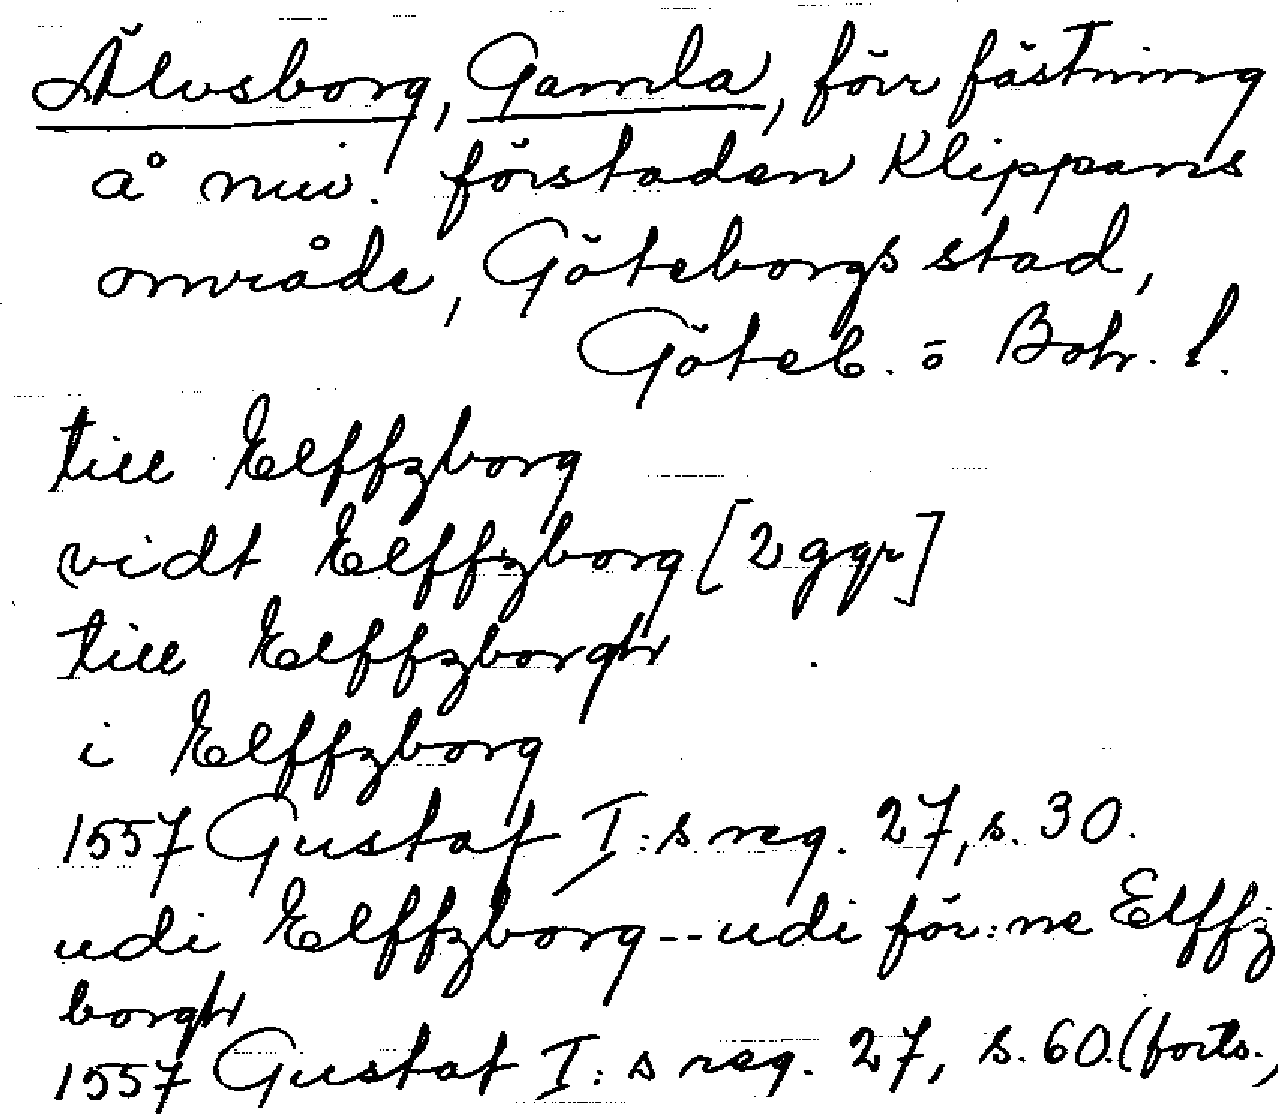 Älvsborg, Gamla, förr fästning
å nuv. förstaden Klippans
område, Göteborgs stad,
Göteb. o Boh. l.
till Elffzborg
vidt Elffzborg [2 ggr]
till Elffzborgh
i Elffzborg
1557 Gustaf I:s reg. 27, s. 30.
udi Elffzborg -- udi för:ne Elffz
borgh
1557 Gustaf I:s reg. 27, s. 60. (forts.)